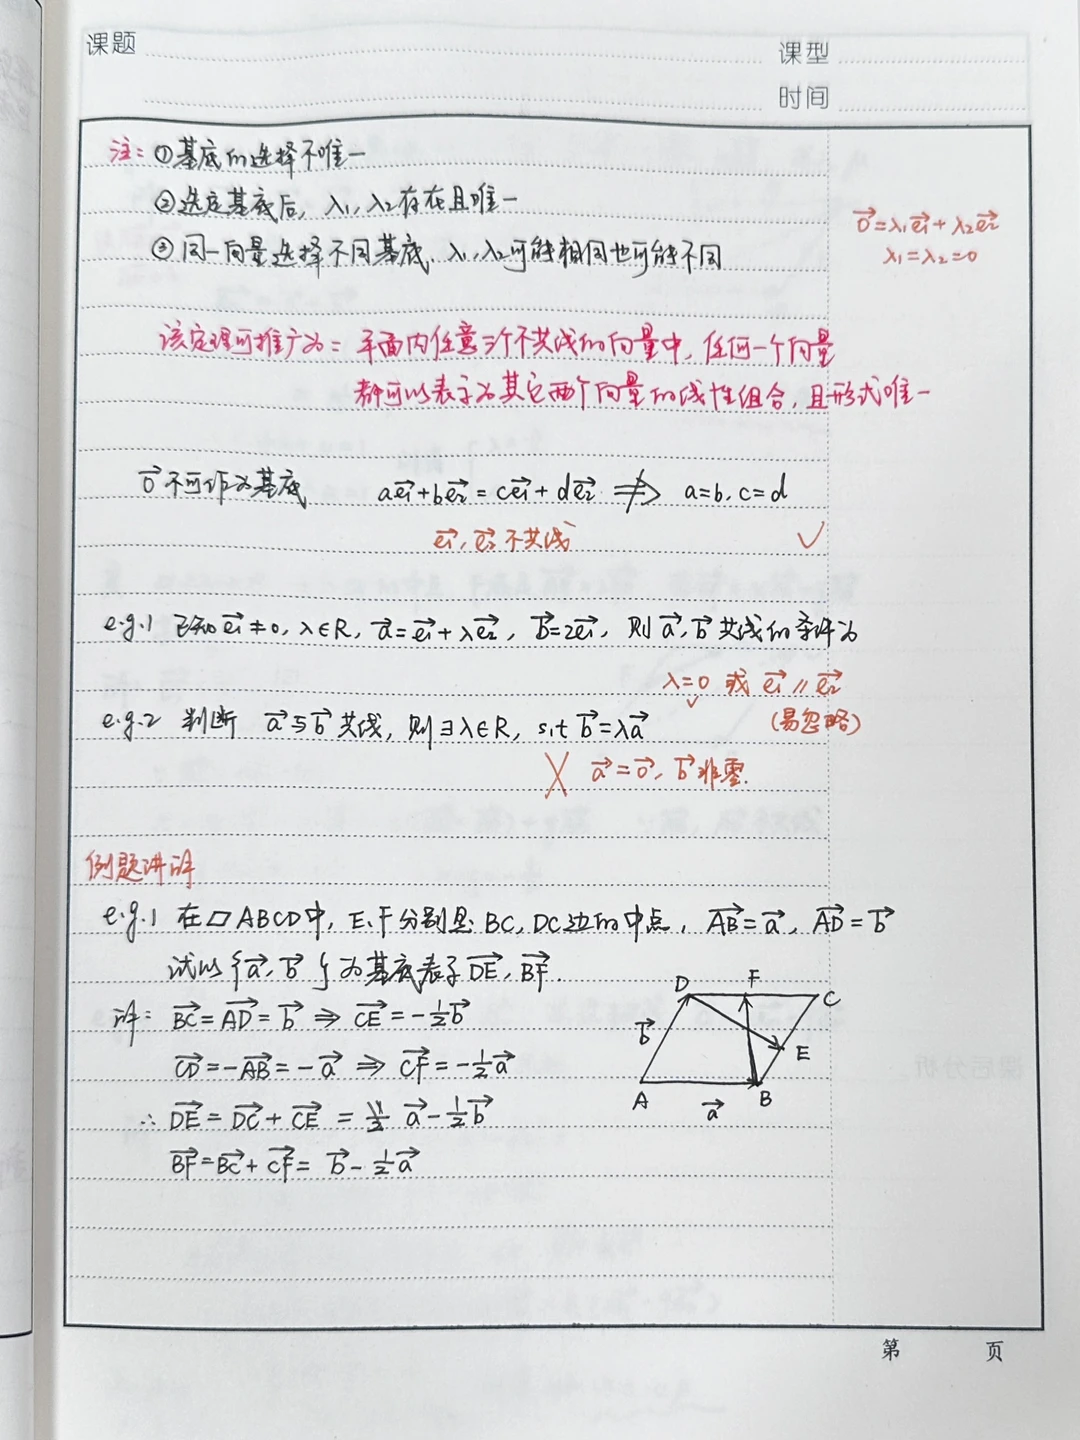 课题
课型
时间
注：①基底的选择不唯一
②选定基底后，λ₁,λ₂存在且唯一
③同一向量选择不同基底、λ₁,λ₂可能相同也可能不同
0⃗=λ₁e₁⃗+λ₂e₂⃗
λ₁=λ₂=0
该定理可推广为：平面内任意三个不共线的向量中，任何一个向量
都可以表示为其它两个向量的线性组合，且形式唯一
0⃗不可作为基底 ae₁⃗+be₂⃗=ce₁⃗+de₂⃗ ⇏ a=b, c=d
e₁⃗, e₂⃗不共线 ✓
e.g.1 已知e₁⃗≠0, λ∈R, a⃗=e₁⃗+λe₂⃗, b⃗=2e₁⃗, 则a⃗,b⃗共线的条件为
λ=0 或 e₁⃗∥e₂⃗
✓ (易忽略)
e.g.2 判断 a⃗与b⃗共线，则∃λ∈R, s.t b⃗=λa⃗
╳ a⃗=0⃗, b⃗非零.
例题讲评
e.g.1 在▱ABCD中, E、F分别是BC, DC边的中点, AB⃗=a⃗, AD⃗=b⃗
试以{a⃗, b⃗}为基底表示DE⃗, BF⃗.
解：BC⃗=AD⃗=b⃗ ⇒ CE⃗=-½b⃗
CD⃗=-AB⃗=-a⃗ ⇒ CF⃗=-½a⃗
∴ DE⃗=DC⃗+CE⃗ = a⃗-½b⃗
BF⃗=BC⃗+CF⃗= b⃗-½a⃗
D F C
b⃗ E
A a⃗ B
第 页